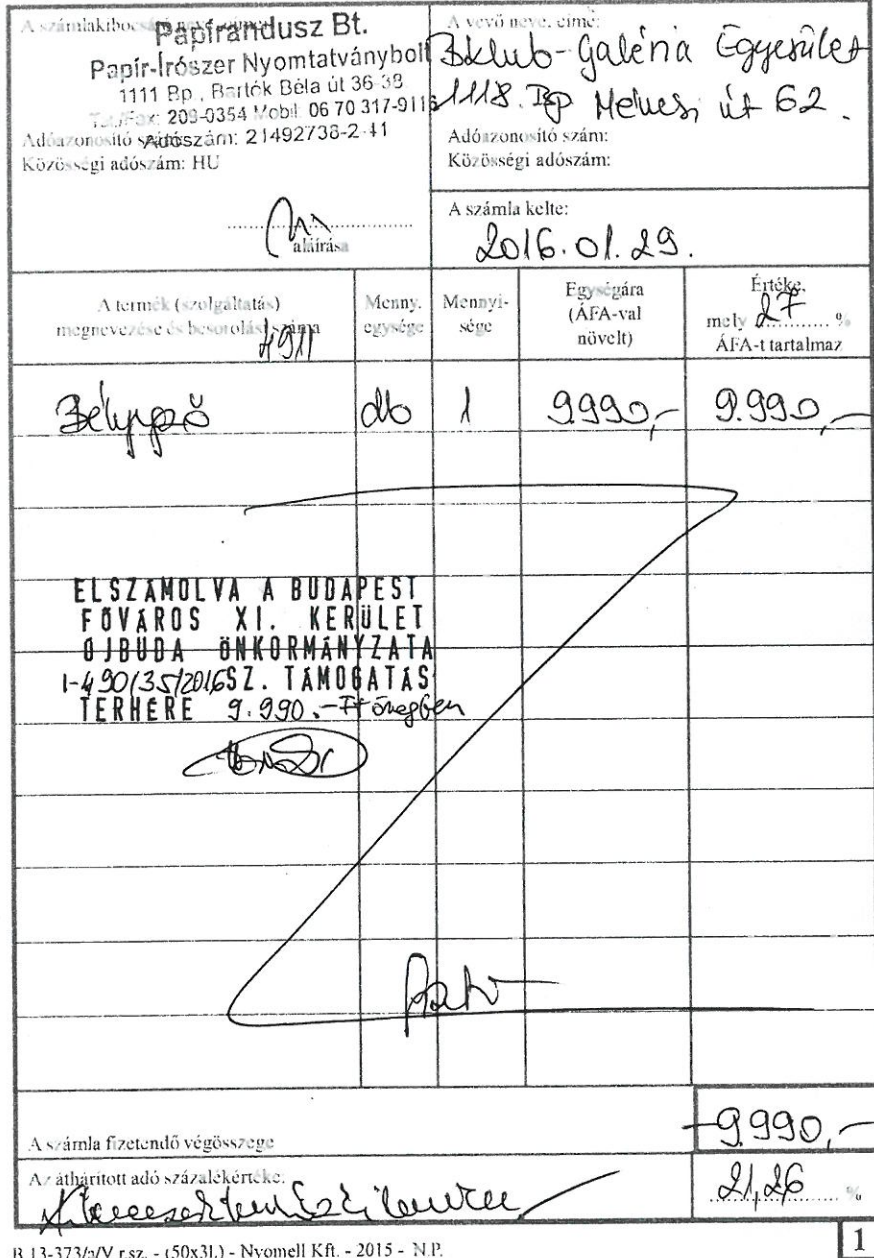 A számlakibocsátó neve, címe:
Papirandusz Bt.
Papír-Írószer Nyomtatványbolt
1111 Bp., Bartók Béla út 36-38
Tel./Fax: 209-0354 Mobil: 06 70 317-9116
Adóazonosító száma:
Adószám: 21492738-2-41
Közösségi adószám: HU
aláírása
A vevő neve, címe:
Bklub-Galéria Egyesület
1118. Bp Ménesi út 62.
Adóazonosító szám:
Közösségi adószám:
A számla kelte:
2016.01.29.
A termék (szolgáltatás) megnevezése és besorolási száma
4911
Menny. egysége
Mennyi-sége
Egységára (ÁFA-val növelt)
Értéke, mely 27 % ÁFA-t tartalmaz
Bélyegző db 1 9990,- 9.990,-
ELSZÁMOLVA A BUDAPEST
FŐVÁROS XI. KERÜLET
ÚJBUDA ÖNKORMÁNYZATA
1-490/35/2016 SZ. TÁMOGATÁS
TERHÉRE 9.990.-Ft összegben
A számla fizetendő végösszege
9.990,-
Az áthárított adó százalékértéke:
21,26 %
B.13-373/a/V r.sz. - (50x3l.) - Nyomell Kft. - 2015 - N.P.
1